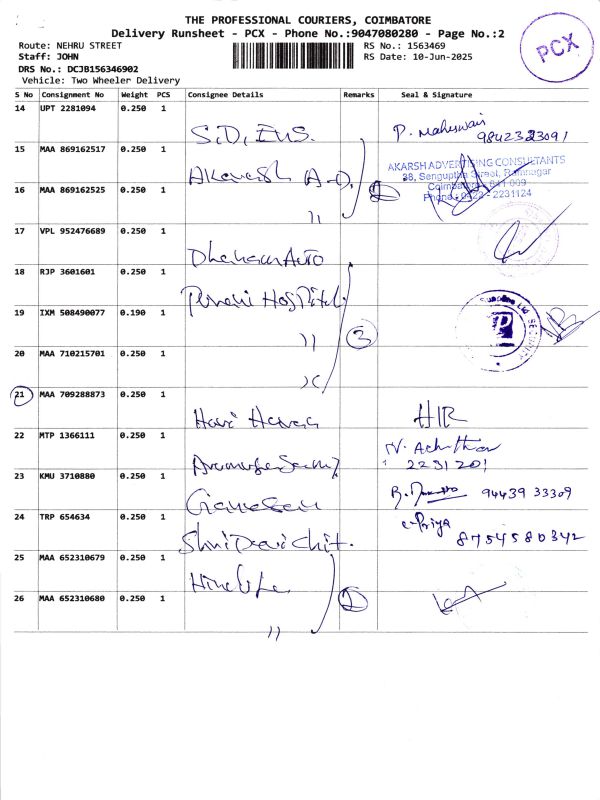 THE PROFESSIONAL COURIERS, COIMBATORE
Delivery Runsheet - PCX - Phone No.:9047080280 - Page No.:2
Route: NEHRU STREET
RS No.: 1563469
Staff: JOHN
RS Date: 10-Jun-2025
DRS No.: DCJB156346902
Vehicle: Two Wheeler Delivery
PCX
S No Consignment No Weight PCS Consignee Details Remarks Seal & Signature
14 UPT 2281094 0.250 1
S.D, EUS. P. Maheswari
9842323091
15 MAA 869162517 0.250 1
Akarsh A.D, 2
AKARSH ADVERTISING CONSULTANTS
38, Senguptha Street, Ramnagar
Coimbatore - 641 009
Phone : 0422 - 2231124
16 MAA 869162525 0.250 1
''
17 VPL 952476689 0.250 1
Auto
18 RJP 3601601 0.250 1
Hospital
19 IXM 508490077 0.190 1
'' 3
SECURITY
20 MAA 710215701 0.250 1
''
21 MAA 709288873 0.250 1
Hari HIR
22 MTP 1366111 0.250 1
N. Achuthan
2231201
23 KMU 3710880 0.250 1
Ganesan B. 94439 33309
24 TRP 654634 0.250 1
Shri Devi Chit. Priya
8754580342
25 MAA 652310679 0.250 1
2
26 MAA 652310680 0.250 1
''